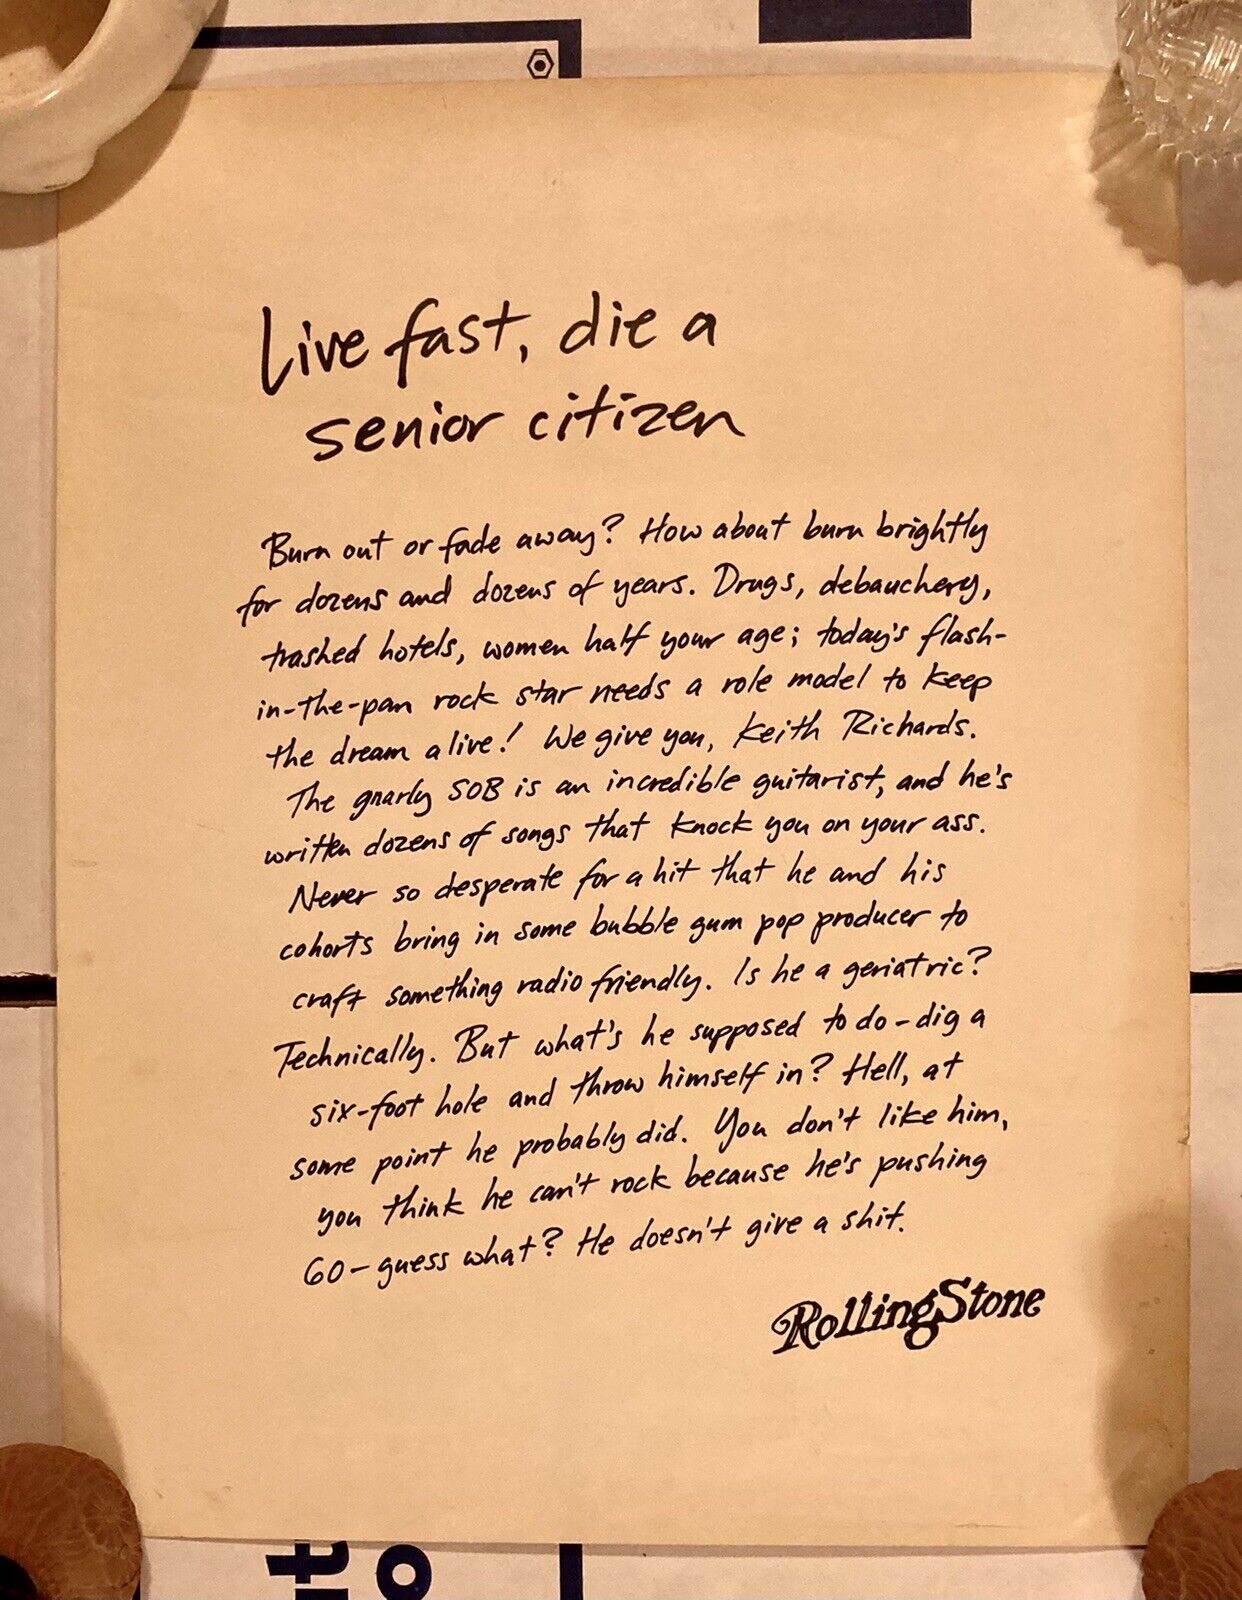 Live fast, die a
senior citizen
Burn out or fade away? How about burn brightly
for dozens and dozens of years. Drugs, debauchery,
trashed hotels, women half your age; today's flash-
in-the-pan rock star needs a role model to keep
the dream alive! We give you, Keith Richards.
The gnarly SOB is an incredible guitarist, and he's
written dozens of songs that knock you on your ass.
Never so desperate for a hit that he and his
cohorts bring in some bubble gum pop producer to
craft something radio friendly. Is he a geriatric?
Technically. But what's he supposed to do-dig a
six-foot hole and throw himself in? Hell, at
some point he probably did. You don't like him,
you think he can't rock because he's pushing
60-guess what? He doesn't give a shit.
RollingStone